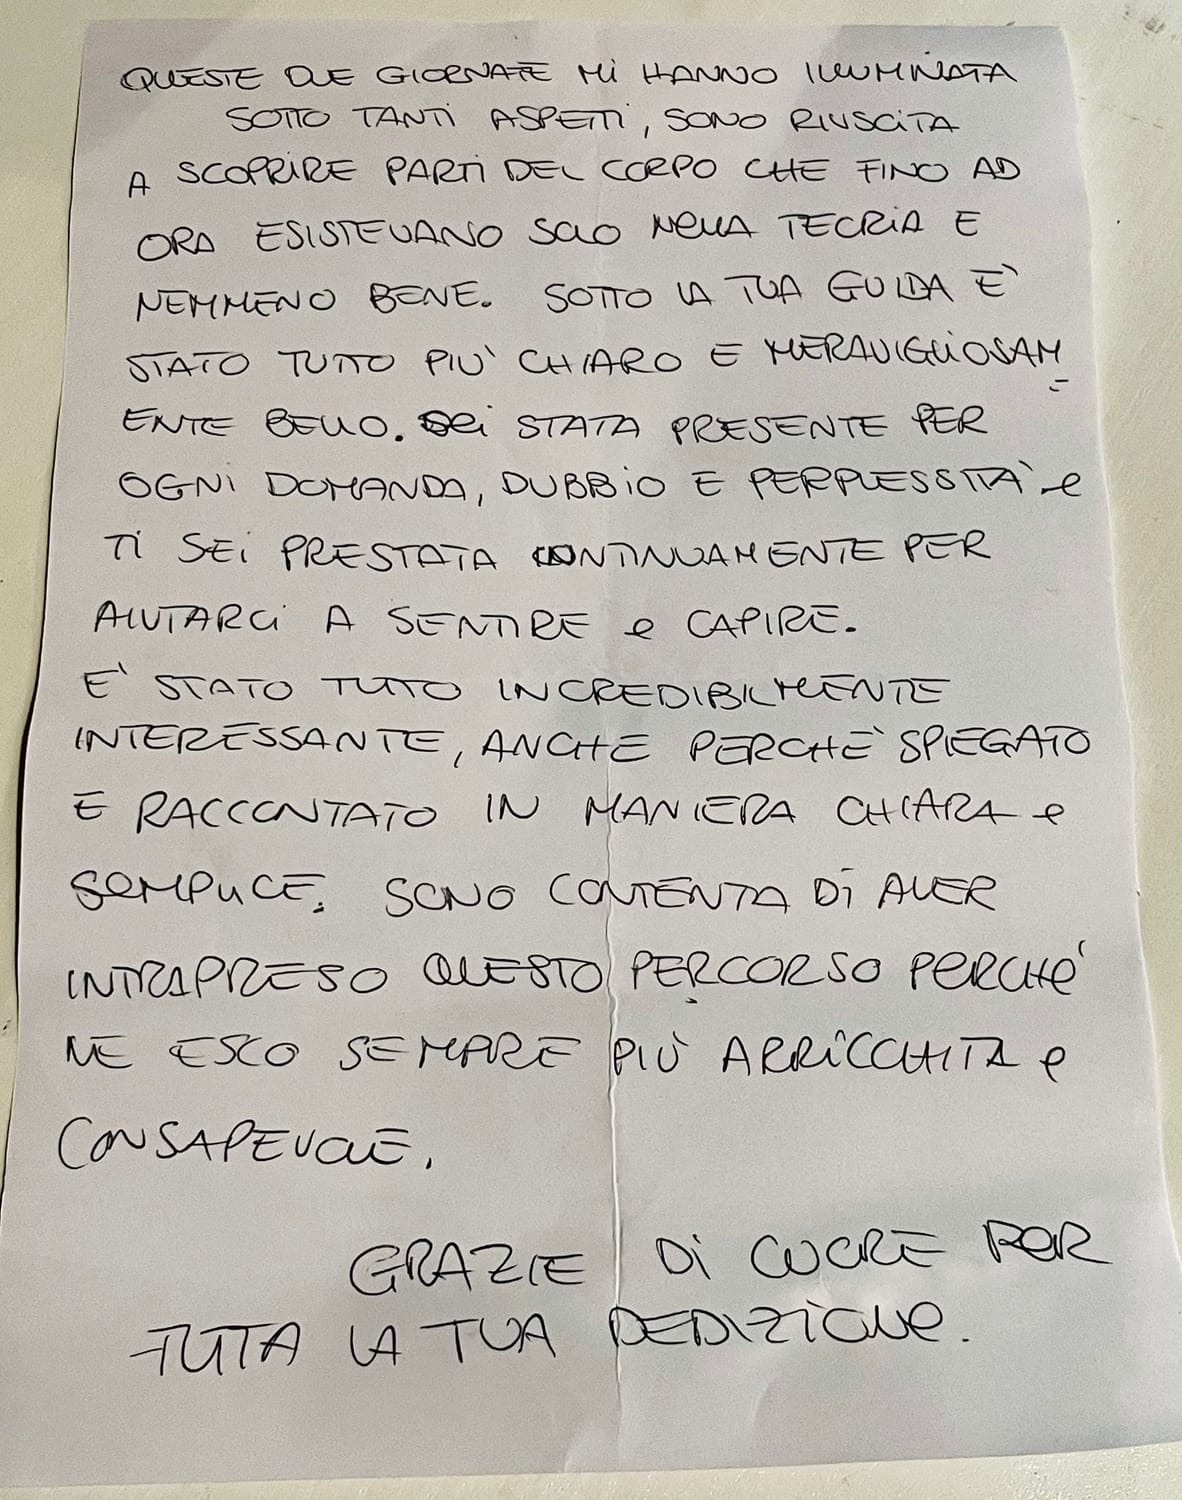 QUESTE DUE GIORNATE Mi HANNO ILLUMINATA
SOTTO TANTi ASPETTi, SONO RIUSCiTA
A SCOPRiRE PARTi DEL CORPO CHE FINO AD
ORA ESISTEVANO SOLO NeLLA TEORiA E
NEMMENO BENE. SOTTO LA TUA GUIDA E'
STATO TUTTO PIU' CHIARO E MERAVIGLIOSAM
ENTE BELLO. Sei STATA PRESENTE PER
OGNi DOMANDA, DUBBiO E PERPLESSITA' e
Ti SEi PRESTATA CONTINUAMENTE PER
AIUTARCi A SENTIRE e CAPIRE.
E' STATO TUTTO INCREDIBILMENTE
INTERESSANTE, ANCHE PERCHE' SPIEGATO
E RACCONTATO IN MANIERA CHIARA e
SEMPLICE. SONO CONTENTA Di AVER
INTRAPRESO QUESTO PERCORSO PERCHe'
NE ESCO SEMPRE PIU' ARRiCCHITA e
CONSAPEVOLE.
GRAZIE Di CUORE PeR
TUTTA LA TUA DEDIZiONe.